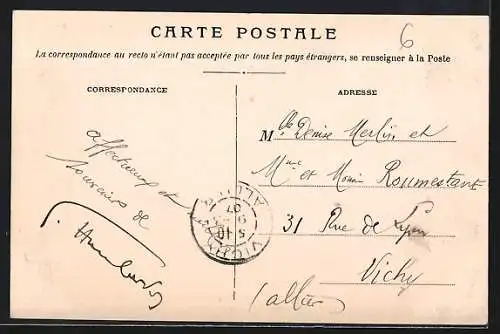 CARTE POSTALE
6
La correspondance au recto n'étant pas acceptée par tous les pays étrangers, se renseigner à la Poste
CORRESPONDANCE
ADRESSE
affectueux et
souvenirs de
Mlle Denise Merlin et
Mme et Roumestant
31 Rue de Lyon
Vichy
(allier
VICHY
ALLIER